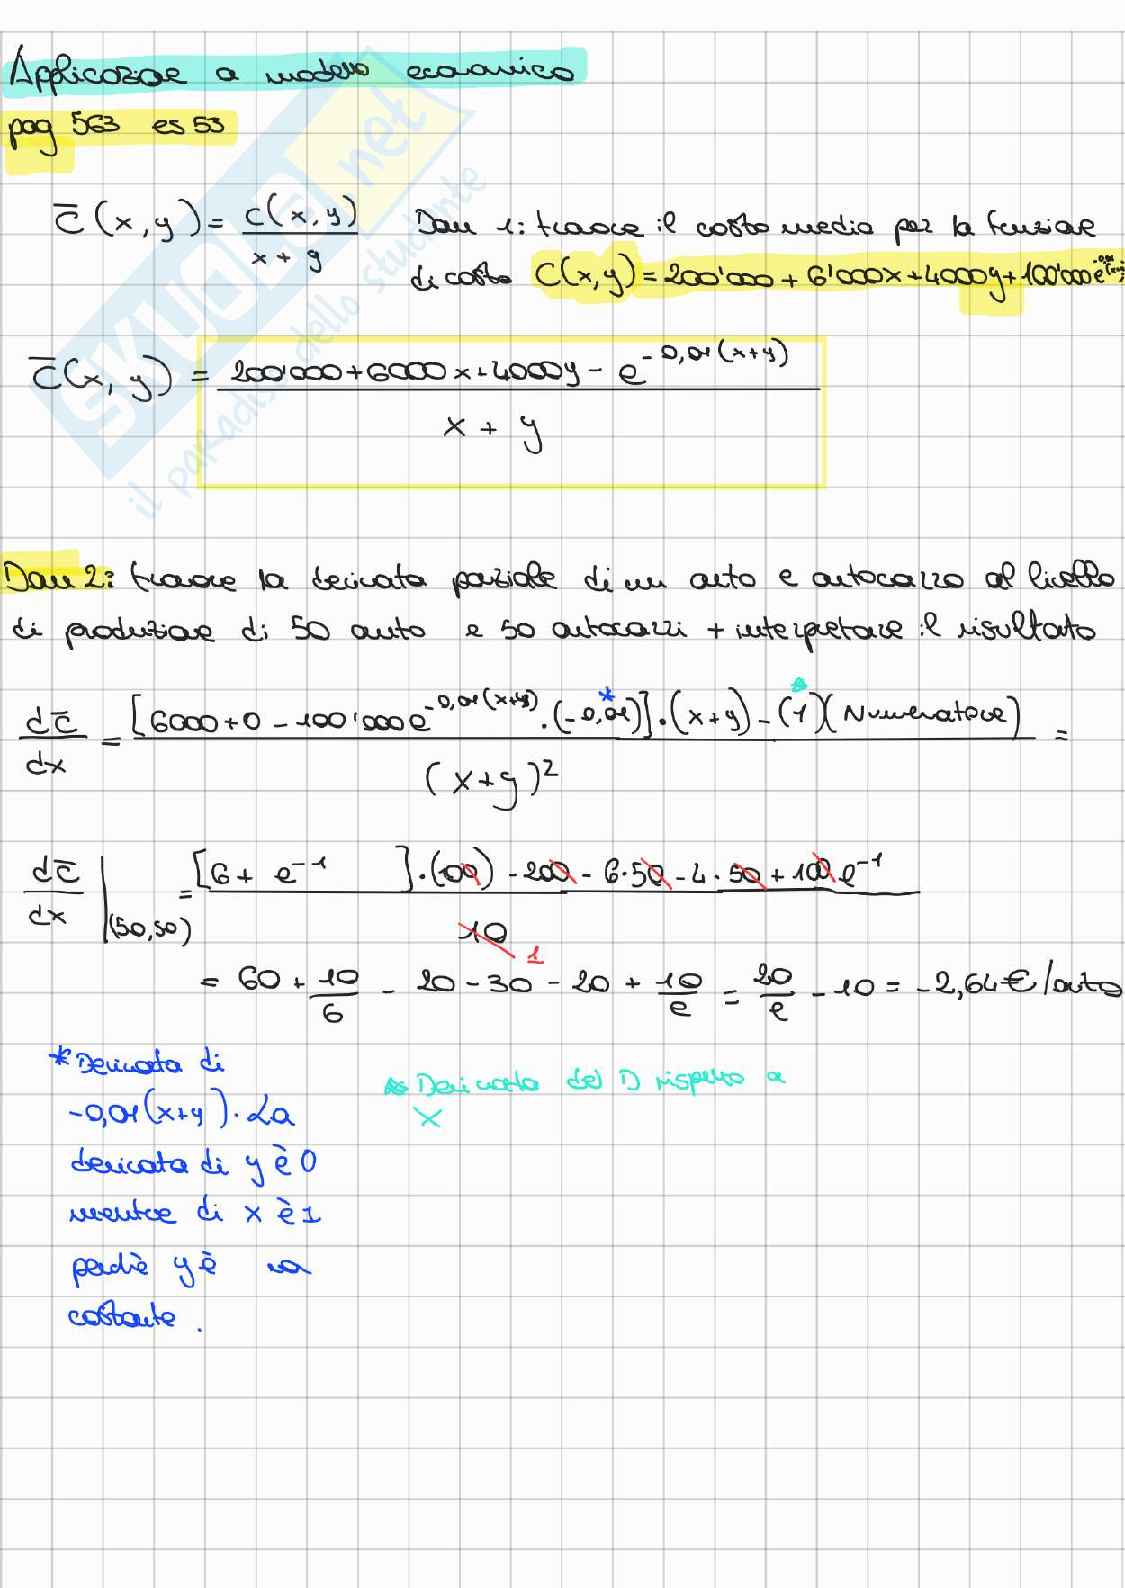 Applicazione a modello economico
pag 563 es 53
C̅(x,y) = C(x,y) / x+y Dom 1: trovare il costo medio per la funzione
di costo C(x,y) = 200'000 + 6'000x + 4000y + 100'000e^-0,01(x+y)
C̅(x,y) = 200'000+6000x+4000y - e^-0,01(x+y) / x + y
Dom 2: trovare la derivata parziale di un auto e autocarro al livello
di produzione di 50 auto e 50 autocarri + interpretare il risultato
dC̅/dx = [6000+0 - 100'000e^-0,01(x+y) · (-0,01)*] · (x+y) - (1)(Numeratore) / (x+y)² =
dC̅/dx |(50,50) = [6 + e^-1 ] · (00) - 200 - 6·50 - 4·50 + 100 e^-1 / 10
1
= 60 + 10/6 - 20 - 30 - 20 + 10/e = 20/e - 10 = -2,64€/auto
*Derivata di
-0,01(x+y). La
derivata di y è 0
mentre di x è 1
perchè y è una
costante.
Derivata del D rispetto a
x
SKUOLA.net
il paradiso dello studente